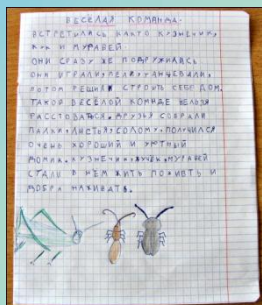 ВЕСЕЛАЯ КОМАНДА.
ВСТРЕТИЛИСЬ КУЗНЕЧИК,
ЖУК И МУРАВЕЙ.
ОНИ СРАЗУ ЖЕ ПОДРУЖИЛИСЬ
ОНИ ИГРАЛИ, ПЕЛИ, ТАНЦЕВАЛИ,
ПОТОМ РЕШИЛИ СТРОИТЬ СЕБЕ ДОМ.
ТАКОЙ ВЕСЕЛОЙ НЕЛЬЗЯ
РАССТОВАТЬСЯ. ДРУЗЬЯ СОБРАЛИ
ПАЛКИ, ЛИСТЬЯ, СОЛОМУ. ПОЛУЧИЛСЯ
ОЧЕНЬ ХОРОШИЙ И УЮТНЫЙ
ДОМИК. КУЗНЕЧИК, ЖУК И МУРАВЕЙ
СТАЛИ В НЕМ ЖИТЬ ПОЖИВАТЬ И
ДОБРА НАЖИВАТЬ.